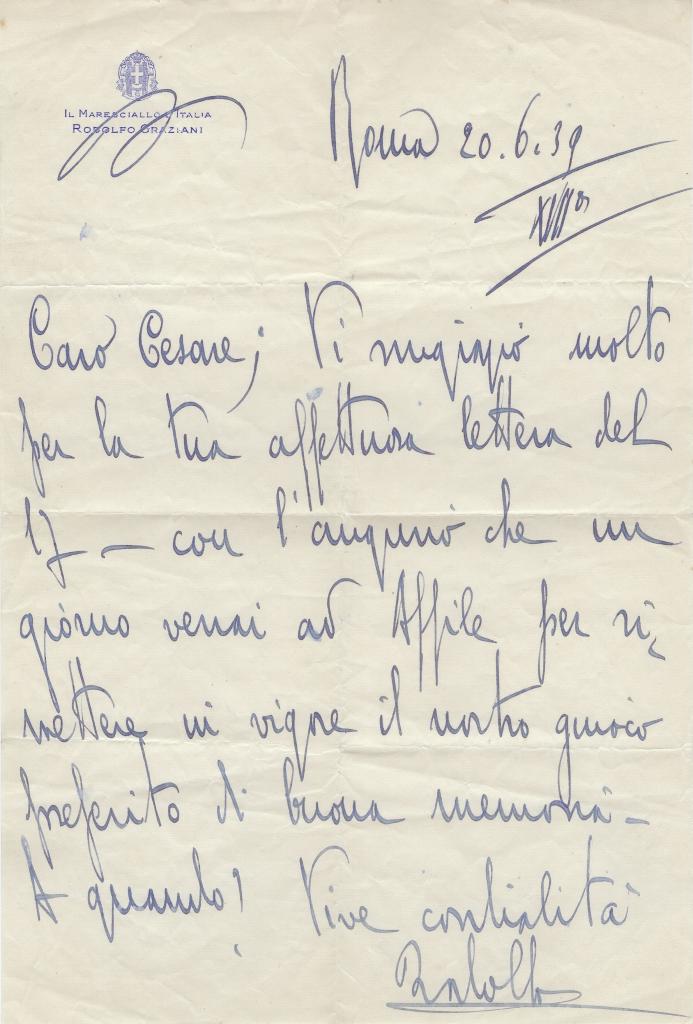 IL MARESCIALLO D'ITALIA
RODOLFO GRAZIANI
Roma 20.6.39
XVII°
Caro Cesare; Ti ringrazio molto
per la tua affettuosa lettera del
17 — con l'augurio che un
giorno verrai ad Affile, per ri-
mettere in vigore il nostro giuoco
preferito di buona memoria —
A quando! Vive cordialità
Rodolfo